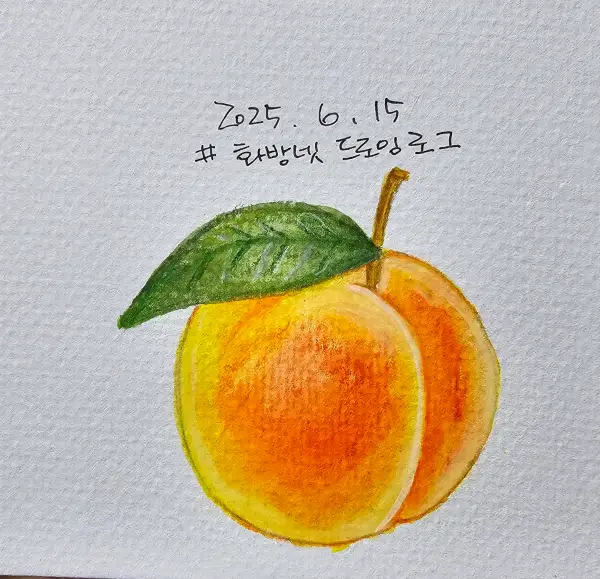 2025. 6. 15
# 화방넷 드로잉로그